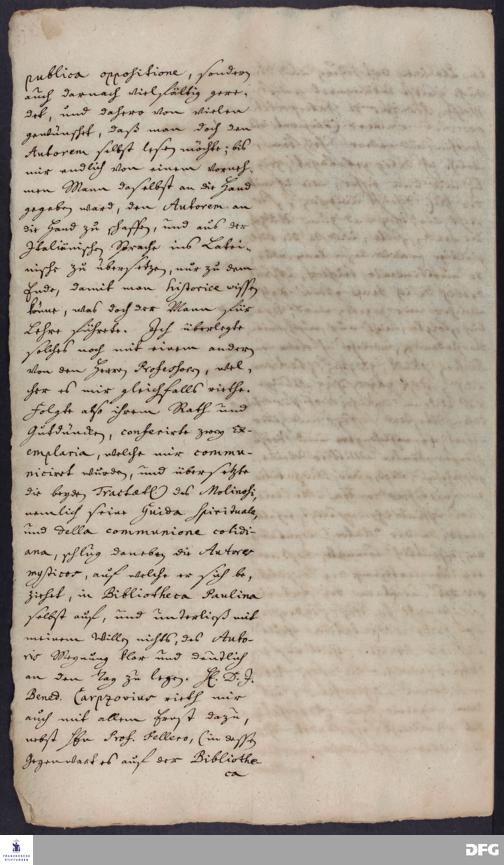 publica oppositione, sondern
auch darnach vielfältig gere-
det, und dahero von vielen
gewünschet, daß man doch den
Autorem selbst lesen möchte; bis
mir endlich von einem vorneh-
men Mann daselbst an die Hand
gegeben ward, den Autorem an
die Hand zu schaffen, und aus der
Italiänischen Sprache ins Latei-
nische zu übersetzen, nur zu dem
Ende, damit man historice wissen
könne, was doch der Mann für
Lehre führete. Ich überlegte
solches noch mit einem andern
von den Herren Professorn, wel-
cher es mir gleichfalls riethe.
Folgte also ihrem Rath und
Gutdüncken, conferirte zwey Ex-
emplaria, welche mir commu-
niciret wurden, und übersetzte
die beyden Tractätl. des Molinosi,
nemlich seine Guida Spirituale,
und della communione cotidi-
ana, schlug daneben die Autores
mysticos, auf welche er sich be-
ziehet, in Bibliotheca Paulina
selbst auf, und unterließ mit
meinem Willen nichts, des Auto-
ris Meynung klar und deutlich
an den Tag zu legen. H. D. J.
Bened. Carpzovius rieth mir
auch mit allem Ernst dazu,
nebst Hn Prof. Fellero, (in dessen
Gegenwart es auf der Bibliothe-
ca
FRANCKESCHE
STIFTUNGEN
DFG